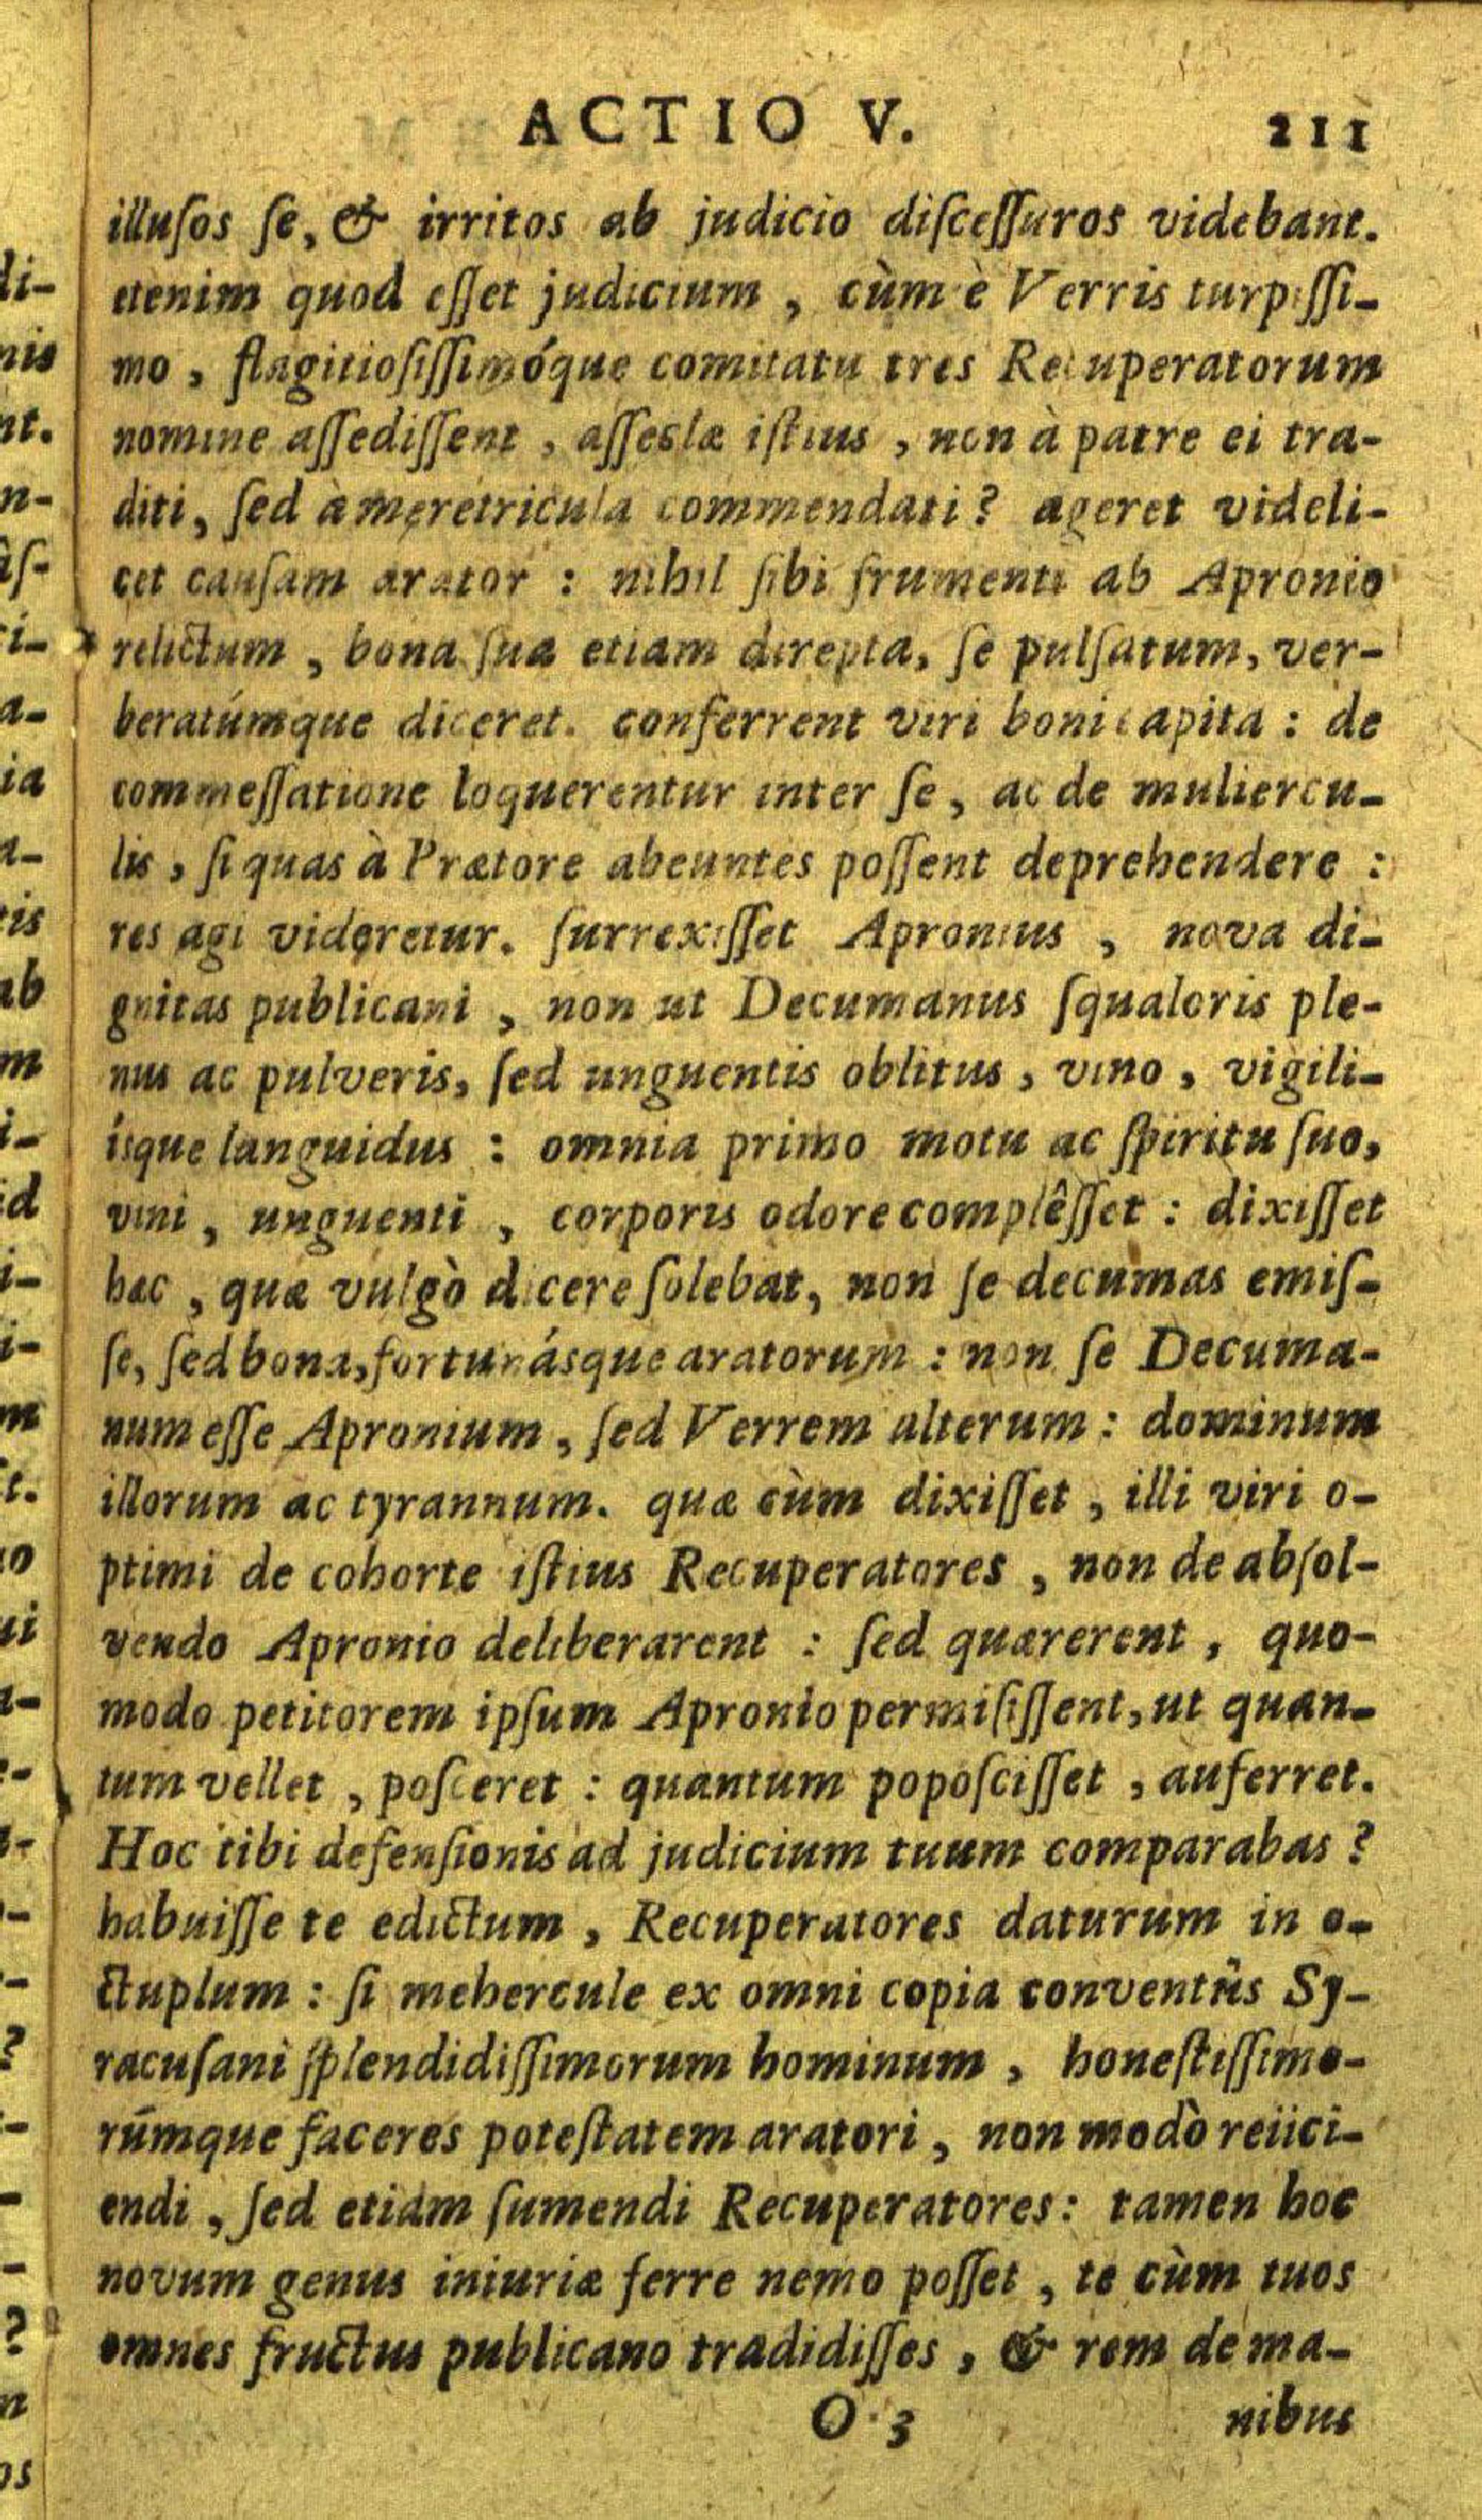 ACTIO V. 211
illuſos ſe, & irritos ab judicio diſceſſuros videbant.
etenim quod eſſet judicium , cùm è Verris turpiſſi-
mo , flagitioſiſſimóque comitatu tres Recuperatorum
nomine aſſediſſent , aſſeclæ iſtius , non à patre ei tra-
diti, ſed à meretricula commendati? ageret videli-
cet cauſam arator : nihil ſibi frumenti ab Apronio
relictum , bona ſua etiam direpta, ſe pulſatum, ver-
beratúmque diceret. conferrent viri boni capita : de
commeſſatione loquerentur inter ſe, ac de muliercu-
lis , ſi quas à Prætore abeuntes poſſent deprehendere :
res agi videretur. ſurrexiſſet Apronius , nova di-
gnitas publicani , non ut Decumanus ſqualoris ple-
nus ac pulveris, ſed unguentis oblitus , vino , vigili-
íſque languidus : omnia primo motu ac ſpiritu ſuo,
vini , unguenti , corporis odore complêſſet : dixiſſet
hæc , quæ vulgò dicere ſolebat, non ſe decumas emiſ-
ſe, ſed bona, fortunásque aratorum : non ſe Decuma-
num eſſe Apronium , ſed Verrem alterum : dominum
illorum ac tyrannum. quæ cùm dixiſſet , illi viri o-
ptimi de cohorte iſtius Recuperatores , non de abſol-
vendo Apronio deliberarent : ſed quærerent , quo-
modo petitorem ipſum Apronio permiſiſſent, ut quan-
tum vellet , poſceret : quantum popoſciſſet , auferret.
Hoc tibi defenſionis ad judicium tuum comparabas ?
habuiſſe te edictum , Recuperatores daturum in o-
ctuplum : ſi mehercule ex omni copia conventûs Sy-
racuſani ſplendidiſſimorum hominum , honeſtiſſimo-
rúmque faceres poteſtatem aratori , non modò reiici-
endi , ſed etiam ſumendi Recuperatores: tamen hoc
novum genus iniuriæ ferre nemo poſſet , te cùm tuos
omnes fructus publicano tradidiſſes , & rem de ma-
O 3 nibus